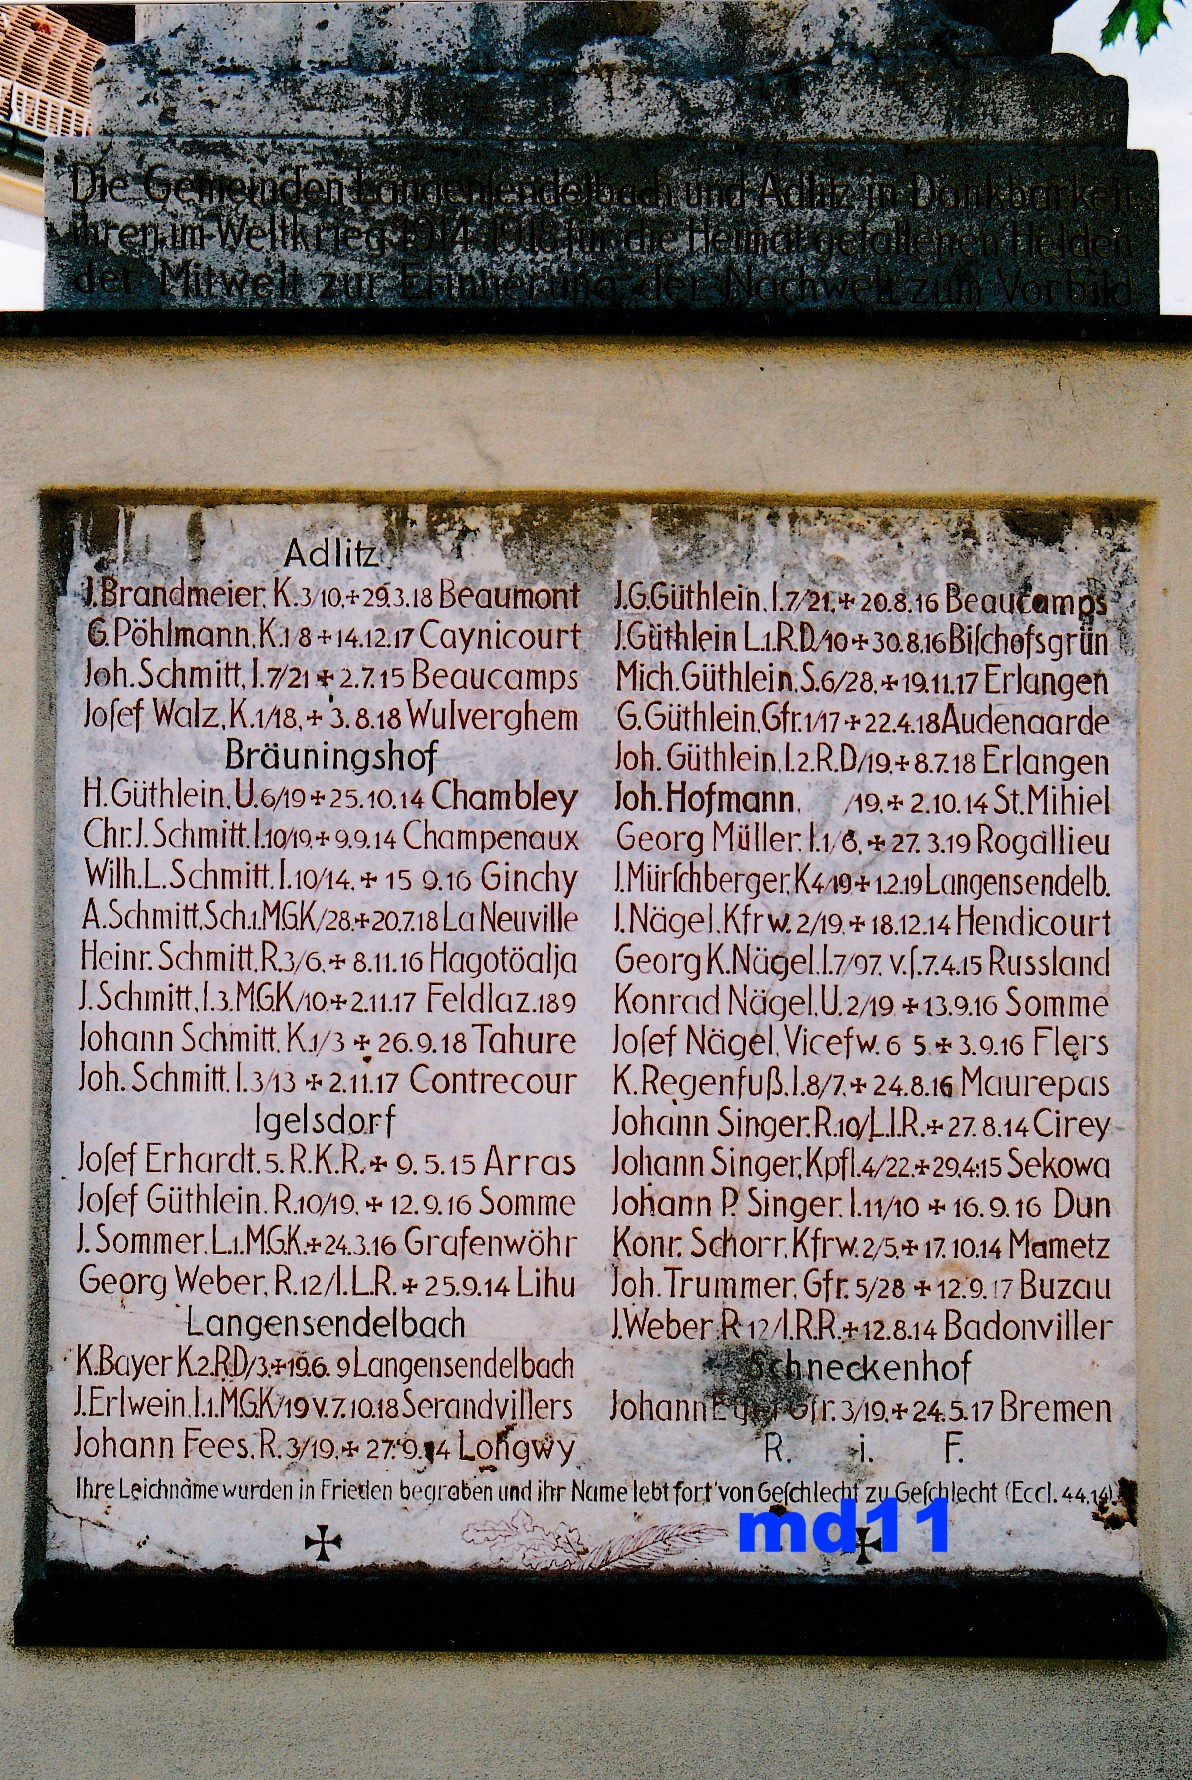 Die Gemeinden Langensendelbach und Adlitz in Dankbarkeit
ihren im Weltkrieg 1914-1918 für die Heimat gefallenen Helden
der Mitwelt zur Erinnerung der Nachwelt zum Vorbild
Adlitz
J.Brandmeier, K.3/10,+29.3.18 Beaumont
G.Pöhlmann,K.1 8+14.12.17 Caynicourt
Joh.Schmitt, I.7/21 + 2.7.15 Beaucamps
Joſef Walz, K.1/18,+ 3.8.18 Wulverghem
Bräuningshof
H.Güthlein, U.6/19+25.10.14 Chambley
Chr.J.Schmitt.I.10/19,+9.9.14 Champenaux
Wilh.L.Schmitt.I.10/14,+ 15 9.16 Ginchy
A.Schmitt,Sch.1.MGK/28,+20.7.18 La Neuville
Heinr. Schmitt,R.3/6,+ 8.11.16 Hagotöalja
J.Schmitt,I.3.MGK/10+2.11.17 Feldlaz.189
Johann Schmitt, K.1/3 + 26.9.18 Tahure
Joh. Schmitt. I.3/13 + 2.11.17 Contrecour
Igelsdorf
Joſef Erhardt.5.R.K.R.+ 9.5.15 Arras
Joſef Güthlein. R.10/19, + 12.9.16 Somme
J.Sommer, L.1.MGK.+24.3.16 Grafenwöhr
Georg Weber, R.12/I.L.R.+ 25.9.14 Lihu
Langensendelbach
K.Bayer K.2.RD/3,+19.6. 9 Langensendelbach
J.Erlwein.I.1.MGK/19 v.7.10.18 Serandvillers
Johann Fees, R.3/19,+ 27.9.14 Longwy
J.G.Güthlein, I.7/21,+ 20.8.16 Beaucamps
J.Güthlein L.1.R.D/10+30.8.16 Biſchofsgrün
Mich.Güthlein,S.6/28,+19.11.17 Erlangen
G.Güthlein,Gfr.1/17+22.4.18 Audenaarde
Joh. Güthlein,I.2.R.D/19,+8.7.18 Erlangen
Joh.Hofmann, /19,+ 2.10.14 St.Mihiel
Georg Müller, I.1/6,+ 27.3.19 Rogallieu
J.Mürſchberger,K4/19+1.2.19 Langensendelb.
J.Nägel,Kfrw.2/19,+ 18.12.14 Hendicourt
Georg K.Nägel,I.7/97, v.ſ.7.4.15 Russland
Konrad Nägel,U.2/19 +13.9.16 Somme
Joſef Nägel,Vicefw. 6 5.+ 3.9.16 Flers
K.Regenfuß,I.8/7,+ 24.8.16 Maurepas
Johann Singer,R.10/L.I.R.+ 27.8.14 Cirey
Johann Singer,Kpfl.4/22.+29.4.15 Sekowa
Johann P. Singer, I.11/10 + 16.9.16 Dun
Konr. Schorr, Kfrw.2/5,+17.10.14 Mametz
Joh. Trummer, Gfr.5/28 +12.9.17 Buzau
J.Weber,R 12/I.R.R.+12.8.14 Badonviller
Schneckenhof
Johann Eger Gfr.3/19,+ 24.5.17 Bremen
R. i. F.
Ihre Leichname wurden in Frieden begraben und ihr Name lebt fort von Geſchlecht zu Geſchlecht (Eccl.44,14).
md11